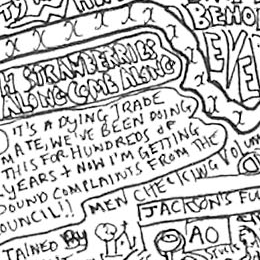 BEHO
EVE
H STRAWBERRIES
ALONG COME ALONG
IT'S A DYING TRADE
MATE, WE'VE BEEN DOING
THIS FOR HUNDREDS OF
YEARS + NOW I'M GETTING
SOUND COMPLAINTS FROM THE
COUNCIL!!
MEN CHECKING VOLUM
JACKSON'S FU
TAINED By
AO